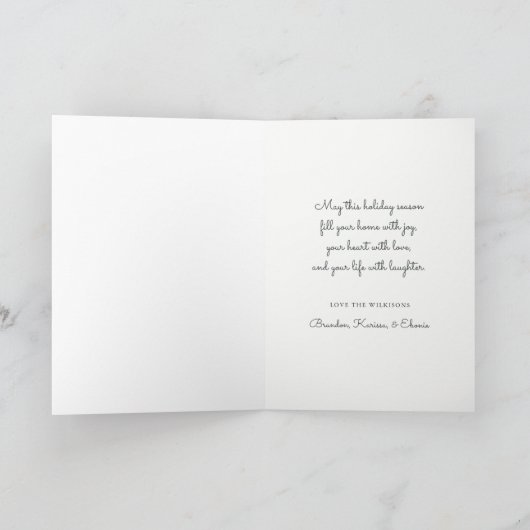 May this holiday season
fill your home with joy,
your heart with love,
and your life with laughter.
LOVE THE WILKISONS
Brandon, Karissa, & Ebonie